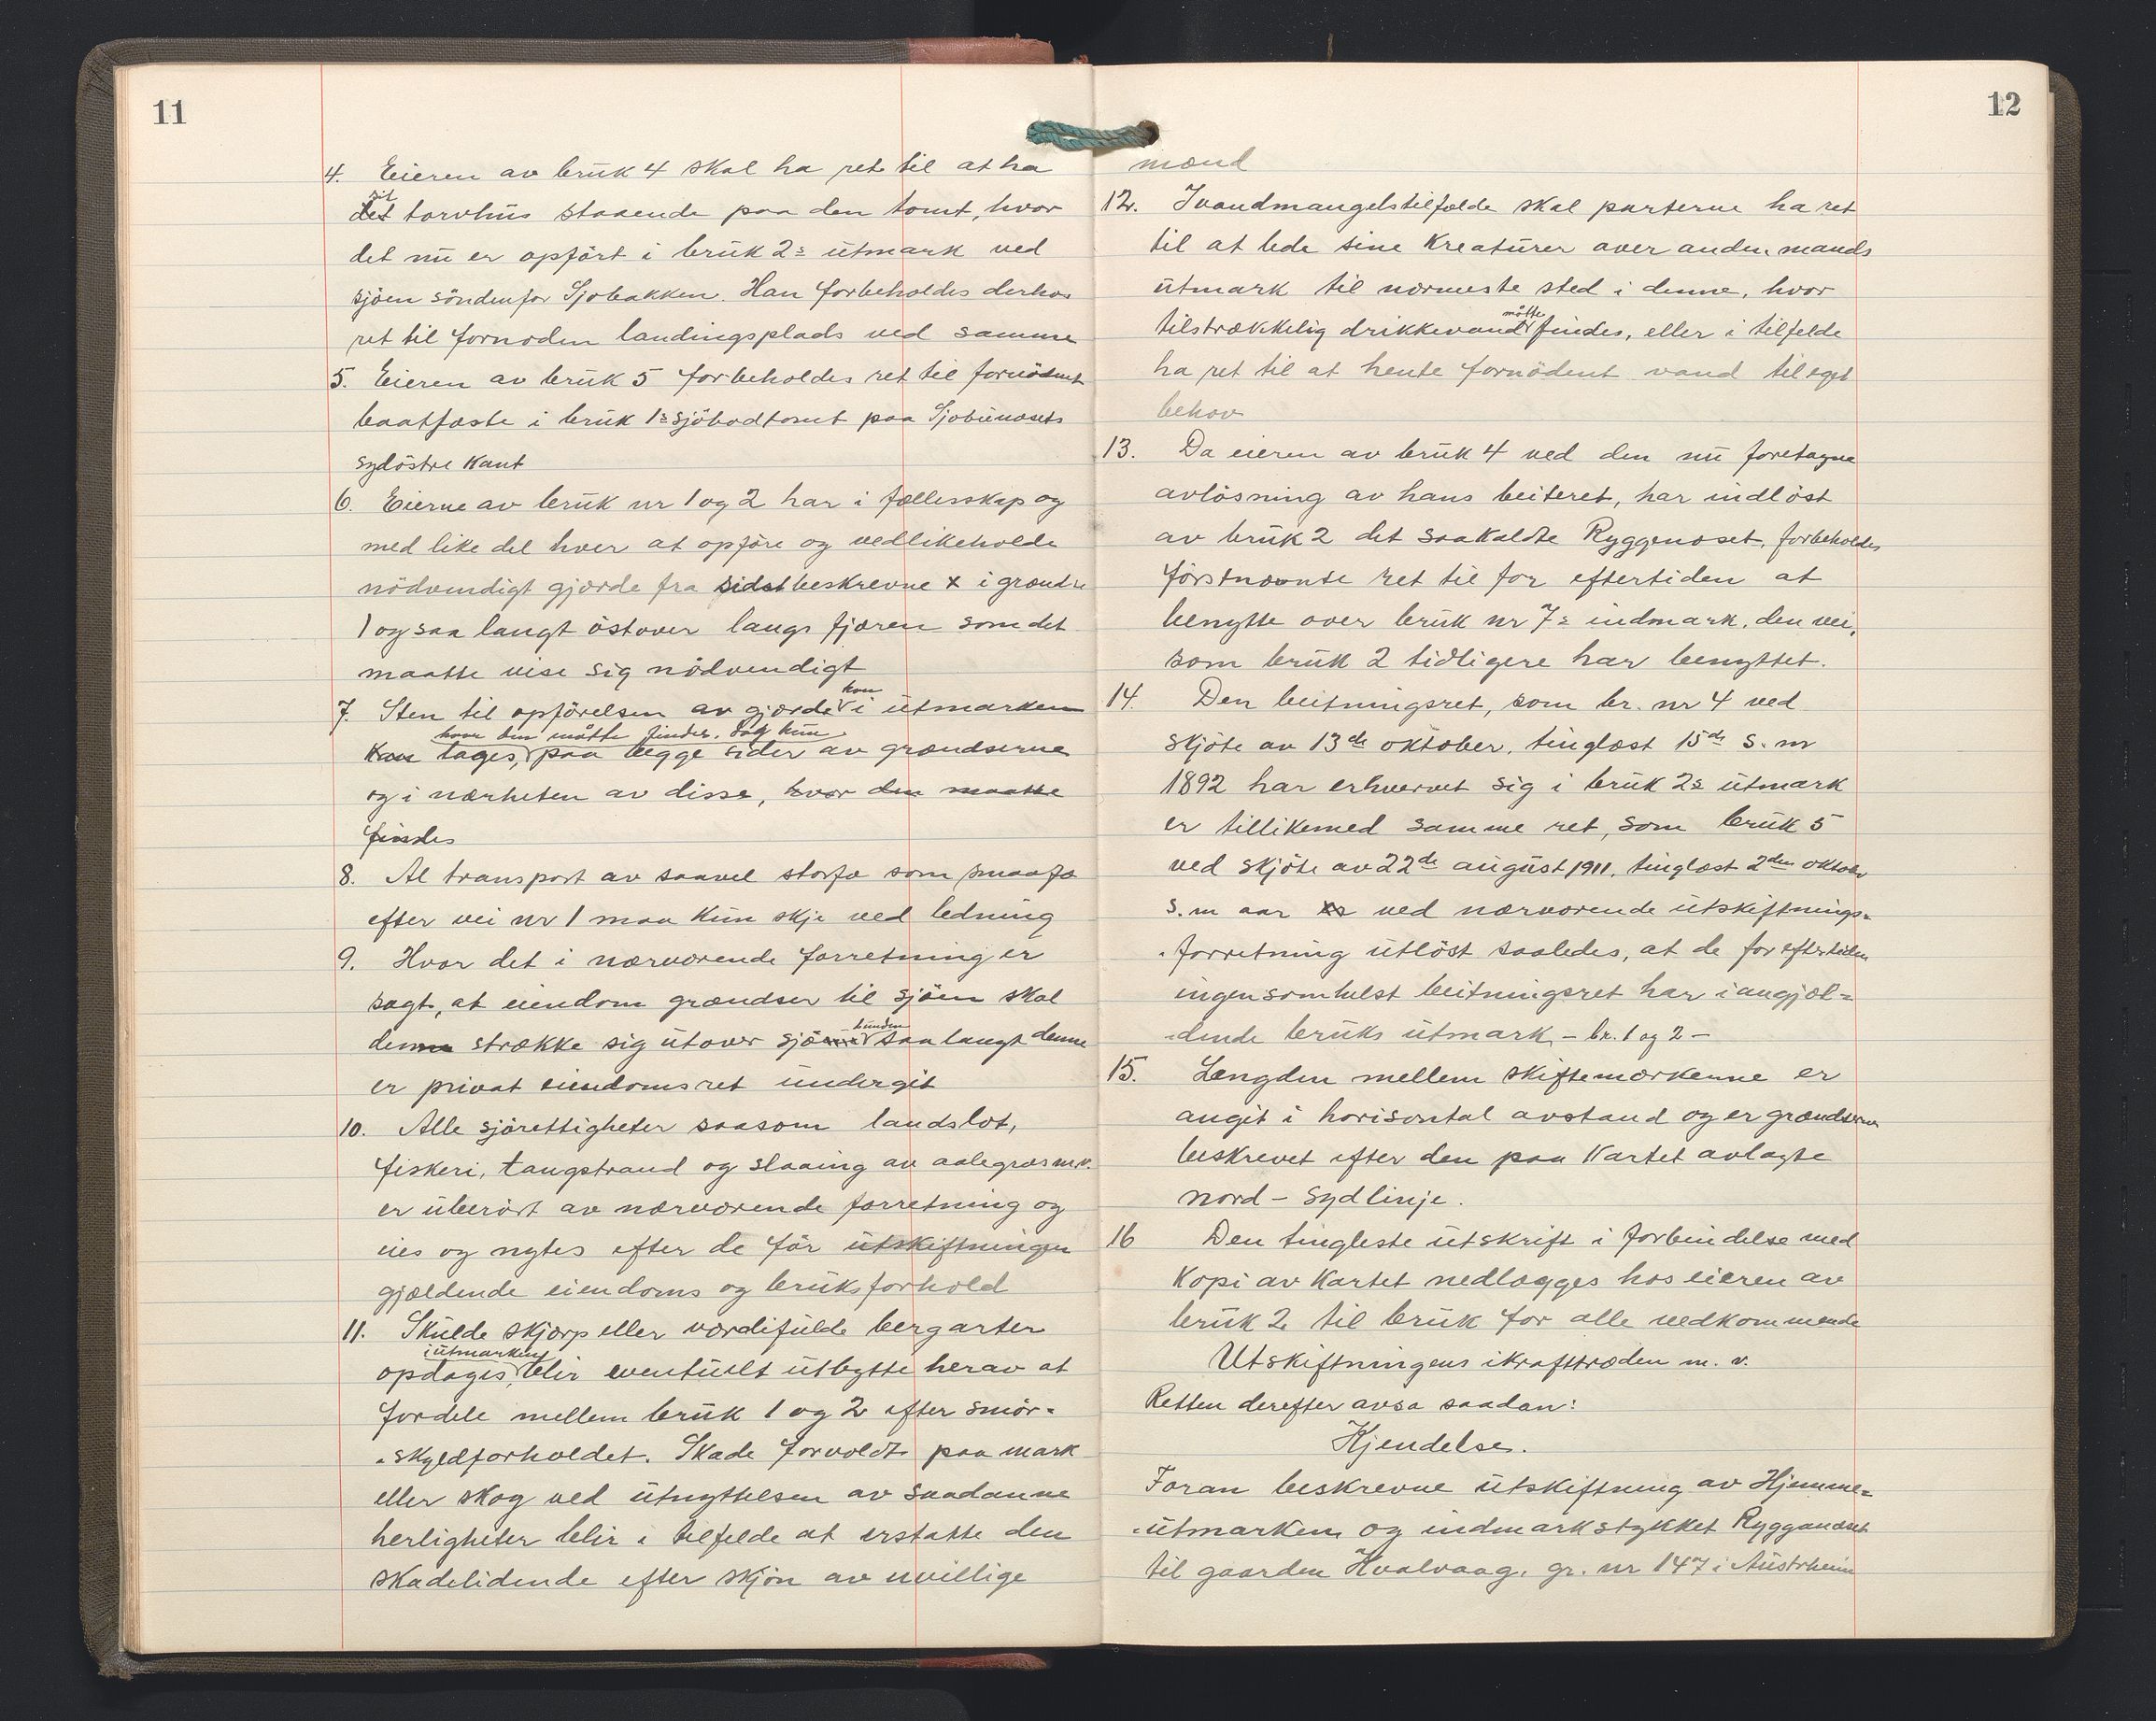 11
4. Eieren av bruk 4 skal ha ret til at ha
sit
det torvhus staaende paa den tomt, hvor
det nu er opført i bruk 2s utmark ved
sjøen søndenfor Sjobakken. Han forbeholdes derhos
ret til fornøden landingsplads ved samme
5. Eieren av bruk 5 forbeholdes ret til fornødent
baatfæste i bruk 1s sjøbodtomt paa
sydøstre kant
6. Eierne av bruk nr 1 og 2 har i fællesskap og
med like del hver at opføre og vedlikeholde
nødvendigt gjærde fra sidst beskrevne x i grændse
1 og saa langt østover langs fjæren som det
maatte vise sig nødvendigt
kan
7. Sten til opførelsen av gjærde i utmarken
hvor den måtte findes, dog kun
kan tages, paa begge sider av grændserne
og i nærheten av disse, hvor den maatte
findes
8. Al transport av saavel storfæ som smaafæ
efter vei nr 1 maa kun skje ved ledning
9. Hvor det i nærværende forretning er
sagt, at eiendom grændser til sjøen skal
bunden
denne strække sig utover sjøen saa langt denne
er privat eiendomsret undergit
10. Alle sjørettigheter saasom landslot,
fiskeri, tangstrand og slaaing av aalegræs m.v.
er uberørt av nærværende forretning og
eies og nytes efter de før utskiftningen
gjældende eiendoms og bruksforhold
11. Skulde skjærp eller værdifulde bergarter
i utmarken
opdages, blir eventuelt utbytte herav at
fordele mellem bruk 1 og 2 efter smør-
-skyldforholdet. Skade forvoldt paa mark
eller skog ved utnyttelsen av saadanne
herligheter blir i tilfelde at erstatte den
skadelidende efter skjøn av uvillige
12
mænd
12. I vandmangelstilfælde skal parterne ha ret
til at lede sine kreaturer over anden mands
utmark til nærmeste sted i denne, hvor
måtte
tilstrækkelig drikkevand findes, eller i tilfelde
ha ret til at hente fornødent vand til eget
behov
13. Da eieren av bruk 4 ved den nu foretagne
avløsning av hans beiteret, har indløst
av bruk 2 det saakaldte Ryggenæset, forbeholdes
førstnævnte ret til for eftertiden at
benytte over bruk nr 7s indmark, den vei,
som bruk 2 tidligere har benyttet.
14. Den beitningsret, som br. nr 4 ved
skjøte av 13de oktober, tinglæst 15de s.m
1892 har erhvervet sig i bruk 2s utmark
er tillikemed samme ret, som bruk 5
ved skjøte av 22de august 1911, tinglæst 2den oktober
s.m aar ved nærværende utskiftnings-
-forretning utløst saaledes, at de for eftertiden
ingensomhelst beitningsret har i angjæl-
-dende bruks utmark - br. 1 og 2 -
15. Længden mellem skiftemærkenne er
angit i horisontal avstand og er grændserne
beskrevet efter den paa kartet avlagte
nord - sydlinje.
16 Den tingleste utskrift i forbindelse med
kopi av kartet nedlægges hos eieren av
bruk 2 til bruk for alle vedkommende
Utskiftningens ikrafttræden m. v.
Retten derefter avsa saadan:
Kjendelse.
Foran beskrevne utskiftning av Hjemme-
-utmarken og indmarkstykket Ryggenæset
til gaarden Hvalvaag, gr. nr 147 i Austrheim